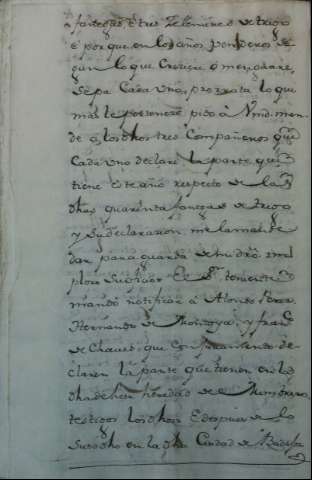 fanegas e tres zelemines de trigo
e porque en los años venideros se
gun lo que creciere o menguare,
sepa cada uno, pro rata lo que
mas le perteneze pido a Vmd. man
de a los dhos tres Compañeros q
Cada uno declare la parte que
tiene este año respecto de las
dhas quarenta fanegas de trigo
y su declaracion me la mande
dar para guarda de mi dro. e
El Sr. teniente
mando notificar a Alonso Perez
Hernando de Montoya, y Fran
de Chaues que de
claren la parte que tienen en la
dha dehesa heredad de
testigos los dhos E despues de lo
susodho en la dha Ciudad de